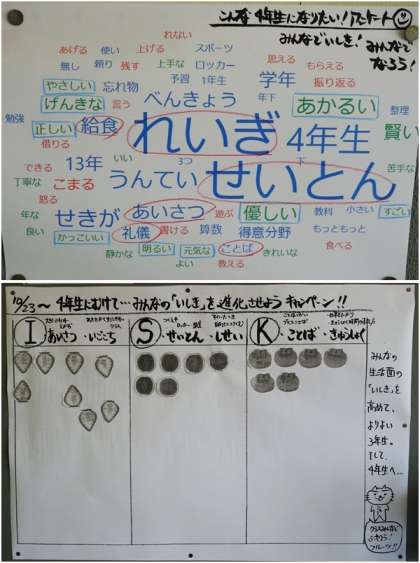 こんな4年生になりたい!アンケート
みんなでいしき!
みんなで
なろう!
れない
あげる 使い 上げる スポーツ
思える もらえる
無し 頼り 残す 上手な ロッカー
予習 1年生 学年 振り返る
やさしい 忘れ物
げんきな 言う べんきょう 年下 あかるい 整理
勉強 正しい 給食 れいぎ 4年生 賢い
借りる
できる 13年 いい 3つ 下 苦手な
丁寧な こまる うんてい せいとん
怒る
年な せきが あいさつ 遊ぶ 優しい 教科 小さい すごい
良い かっこいい 礼儀 書ける 算数 得意分野 もっともっと
静かな 明るい 元気な ことば きれいな 食べる
よい 教える
10/23~ 4年生にむけて…みんなの「いしき」を進化させよう キャンペーン!!
I
・あいさつ ・いごこち
S
・せいとん ・しせい
K
・ことば ・きゅうしょく
みんなの
生活面の
「いしき」を
高めて、
よりよい
3年生。
そして、
4年生へ…